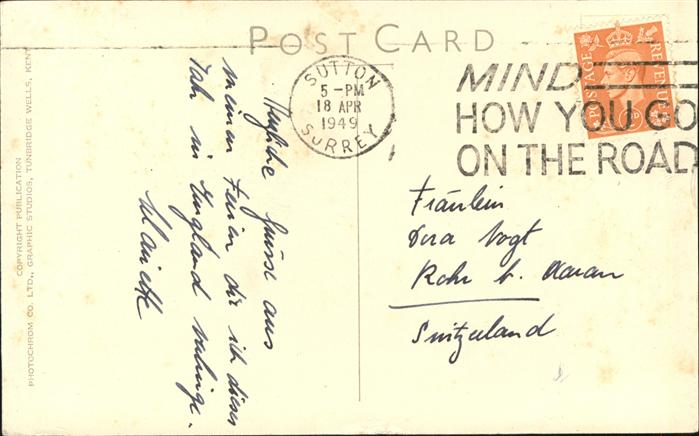 POST CARD
SUTTON
5-PM
18 APR
1949
SURREY
MIND
HOW YOU GO
ON THE ROAD
POSTAGE
REVENUE
Herzliche Grüsse aus
meinen Ferien die ich dieses
Jahr in England verbringe.
Fräulein
Dora Vogt
Rohr b. Aarau
Switzerland
COPYRIGHT PUBLICATION
PHOTOCHROM CO. LTD., GRAPHIC STUDIOS, TUNBRIDGE WELLS, KENT